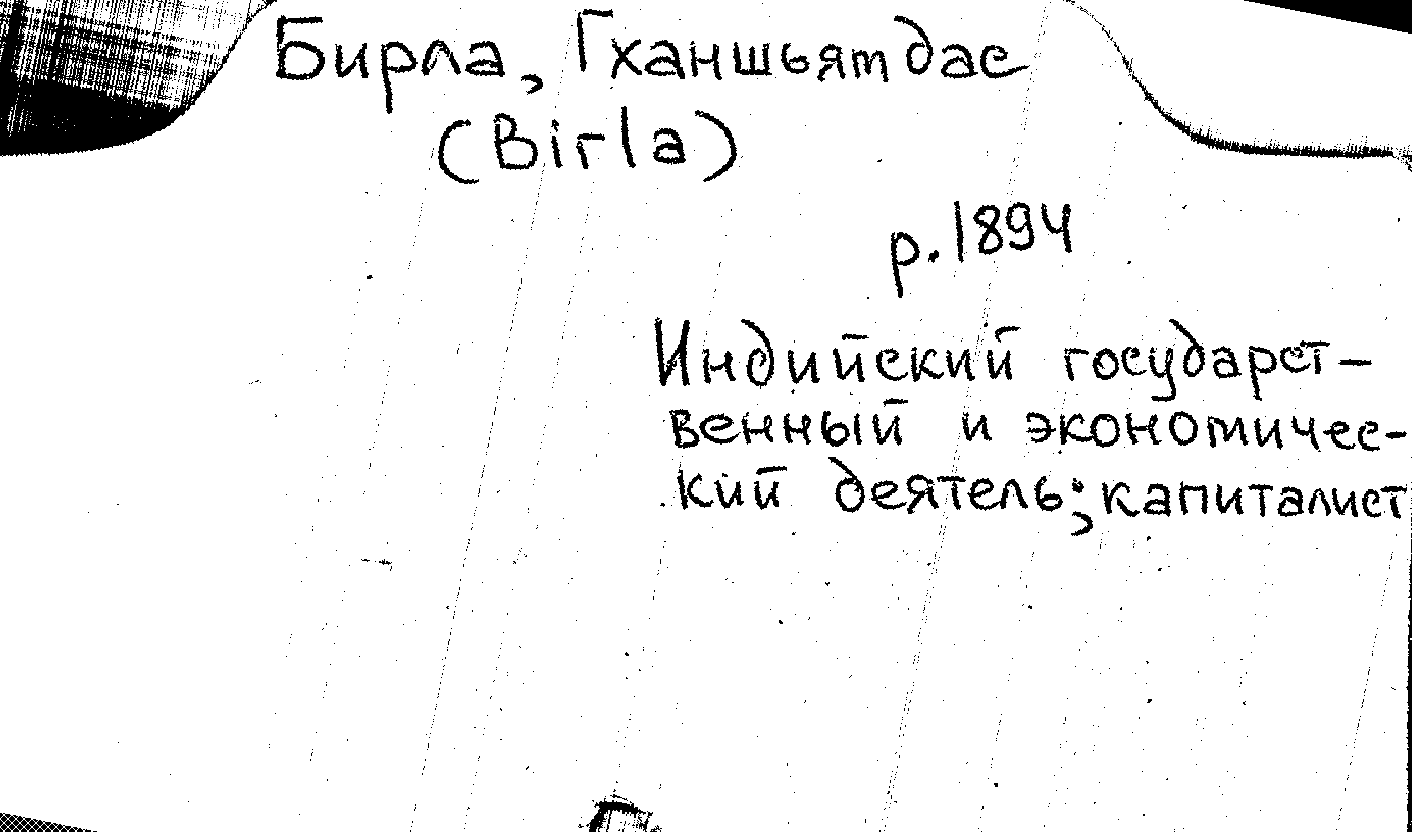 Бирла, Гханшьямдас
(Birla)
р. 1894
Индийский государст-
венный и экономичес-
кий деятель; капиталист